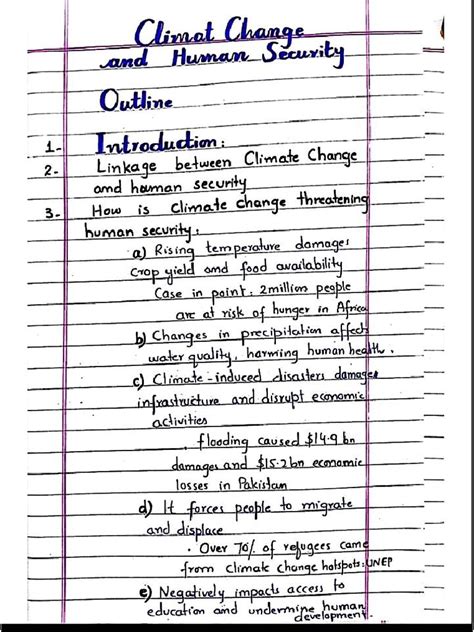 Climat Change
and Human Security
Outline
1- Introduction:
2- Linkage between Climate Change
and human security
3- How is climate change threatening
human security:
a) Rising temperature damages
crop yield and food availability
Case in point: 2million people
are at risk of hunger in Africa
b) Changes in precipitation affect
water quality, harming human health.
c) Climate-induced disasters damages
infrastructure and disrupt economic
activities
. flooding caused $14.9 bn
damages and $15.2bn economic
losses in Pakistan
d) It forces people to migrate
and displace
. Over 70% of refugees came
from climate change hotspots:UNEP
e) Negatively impacts access to
education and undermine human
development.